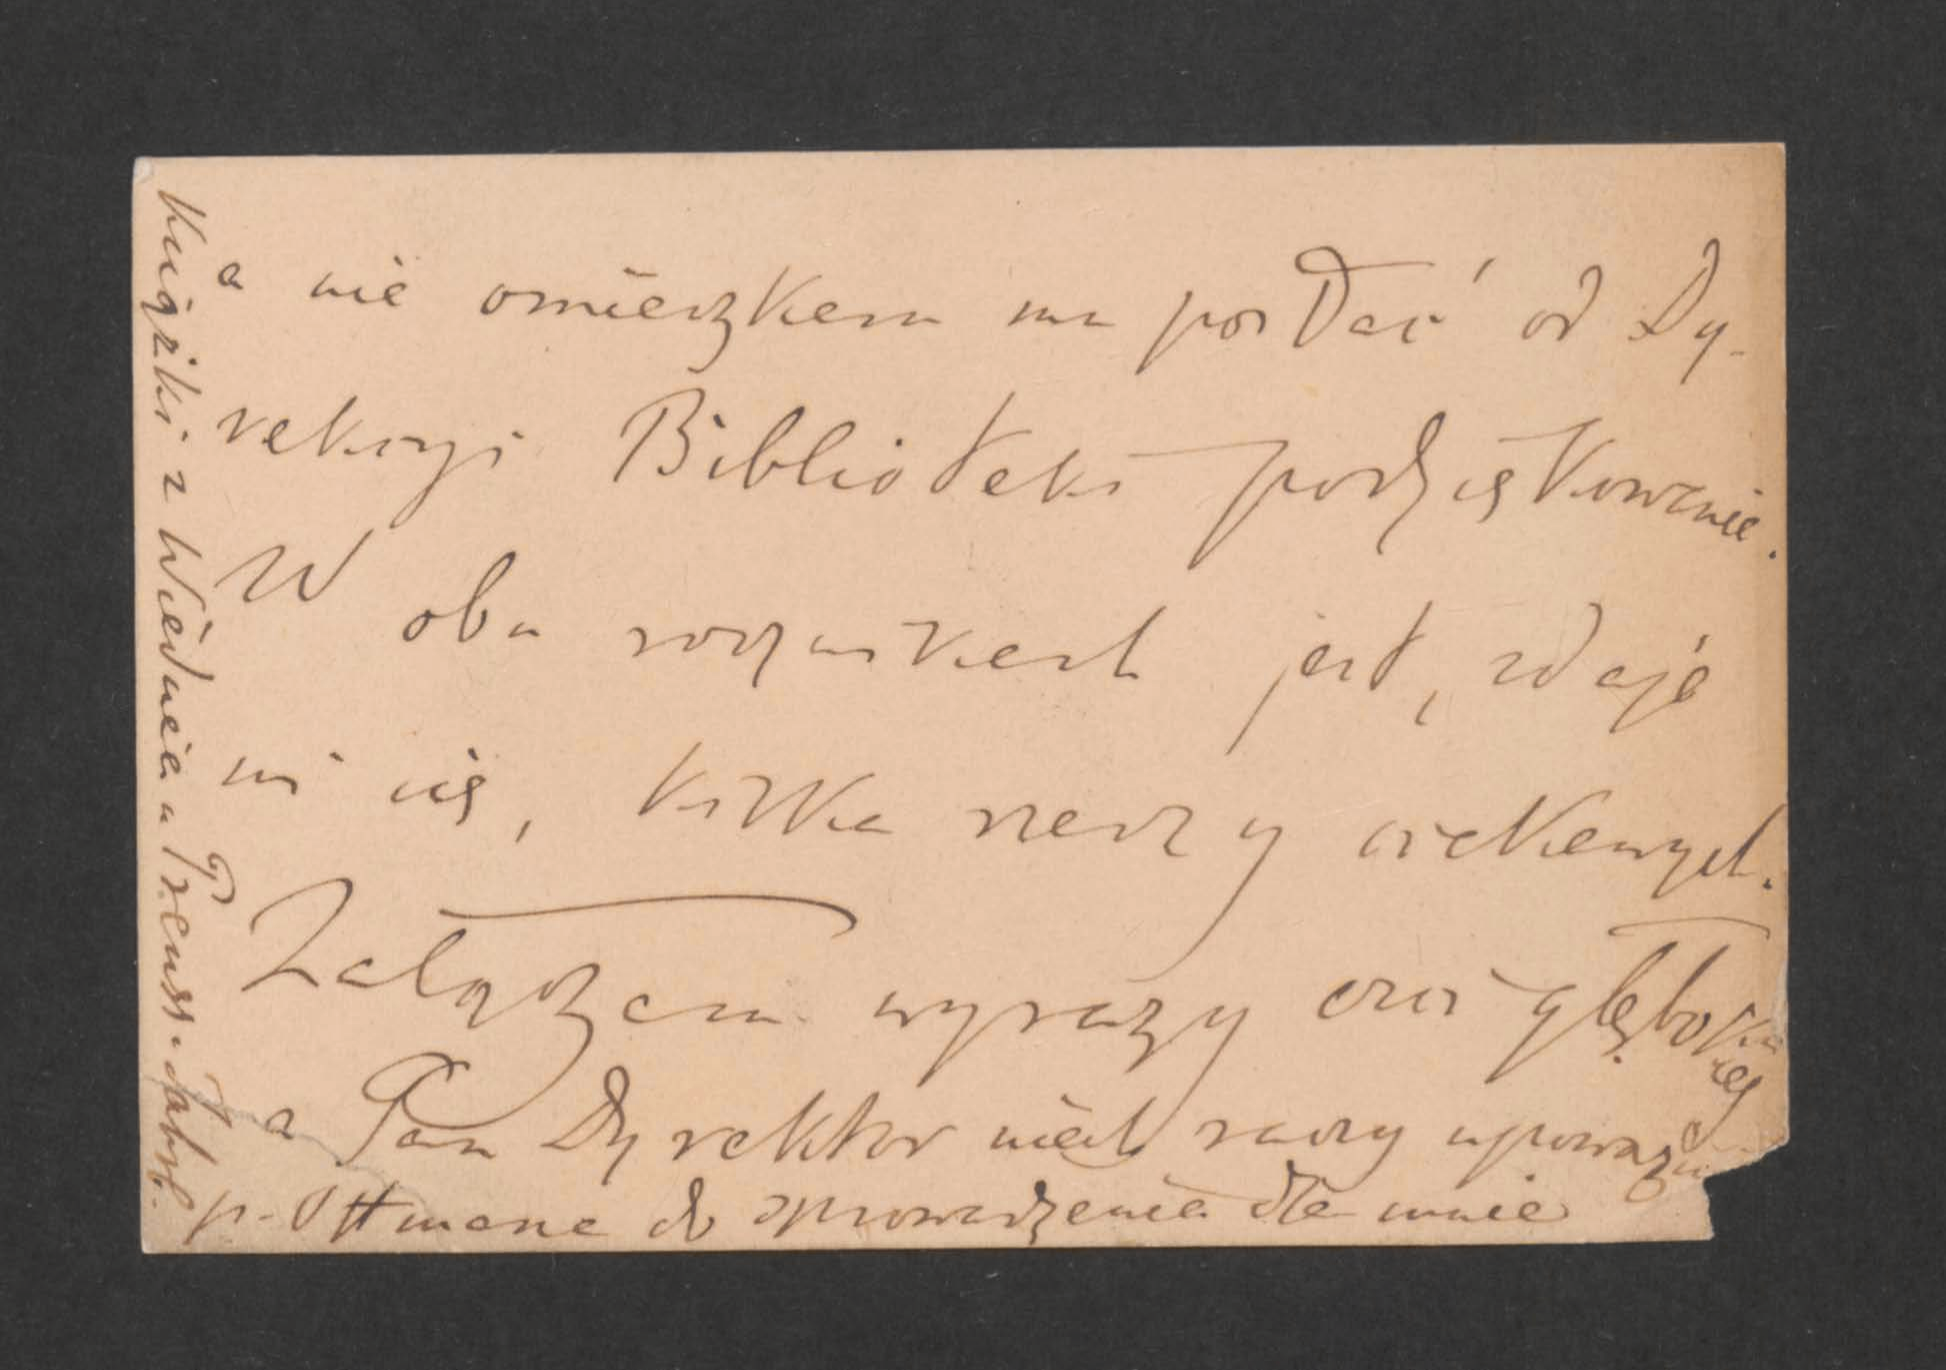 a nie omieszkam mu posłać od Dy-
rekcyi Biblioteki podziękowanie.
W obu rocznikach jest, zdaje
mi się, kilka rzeczy ciekawych.
Załączam wyrazy czci głębokiej
a Pan Dyrektor niech raczy upoważnić
p. Ottmana do sprowadzenia dla mnie
Książki z Wiednia a